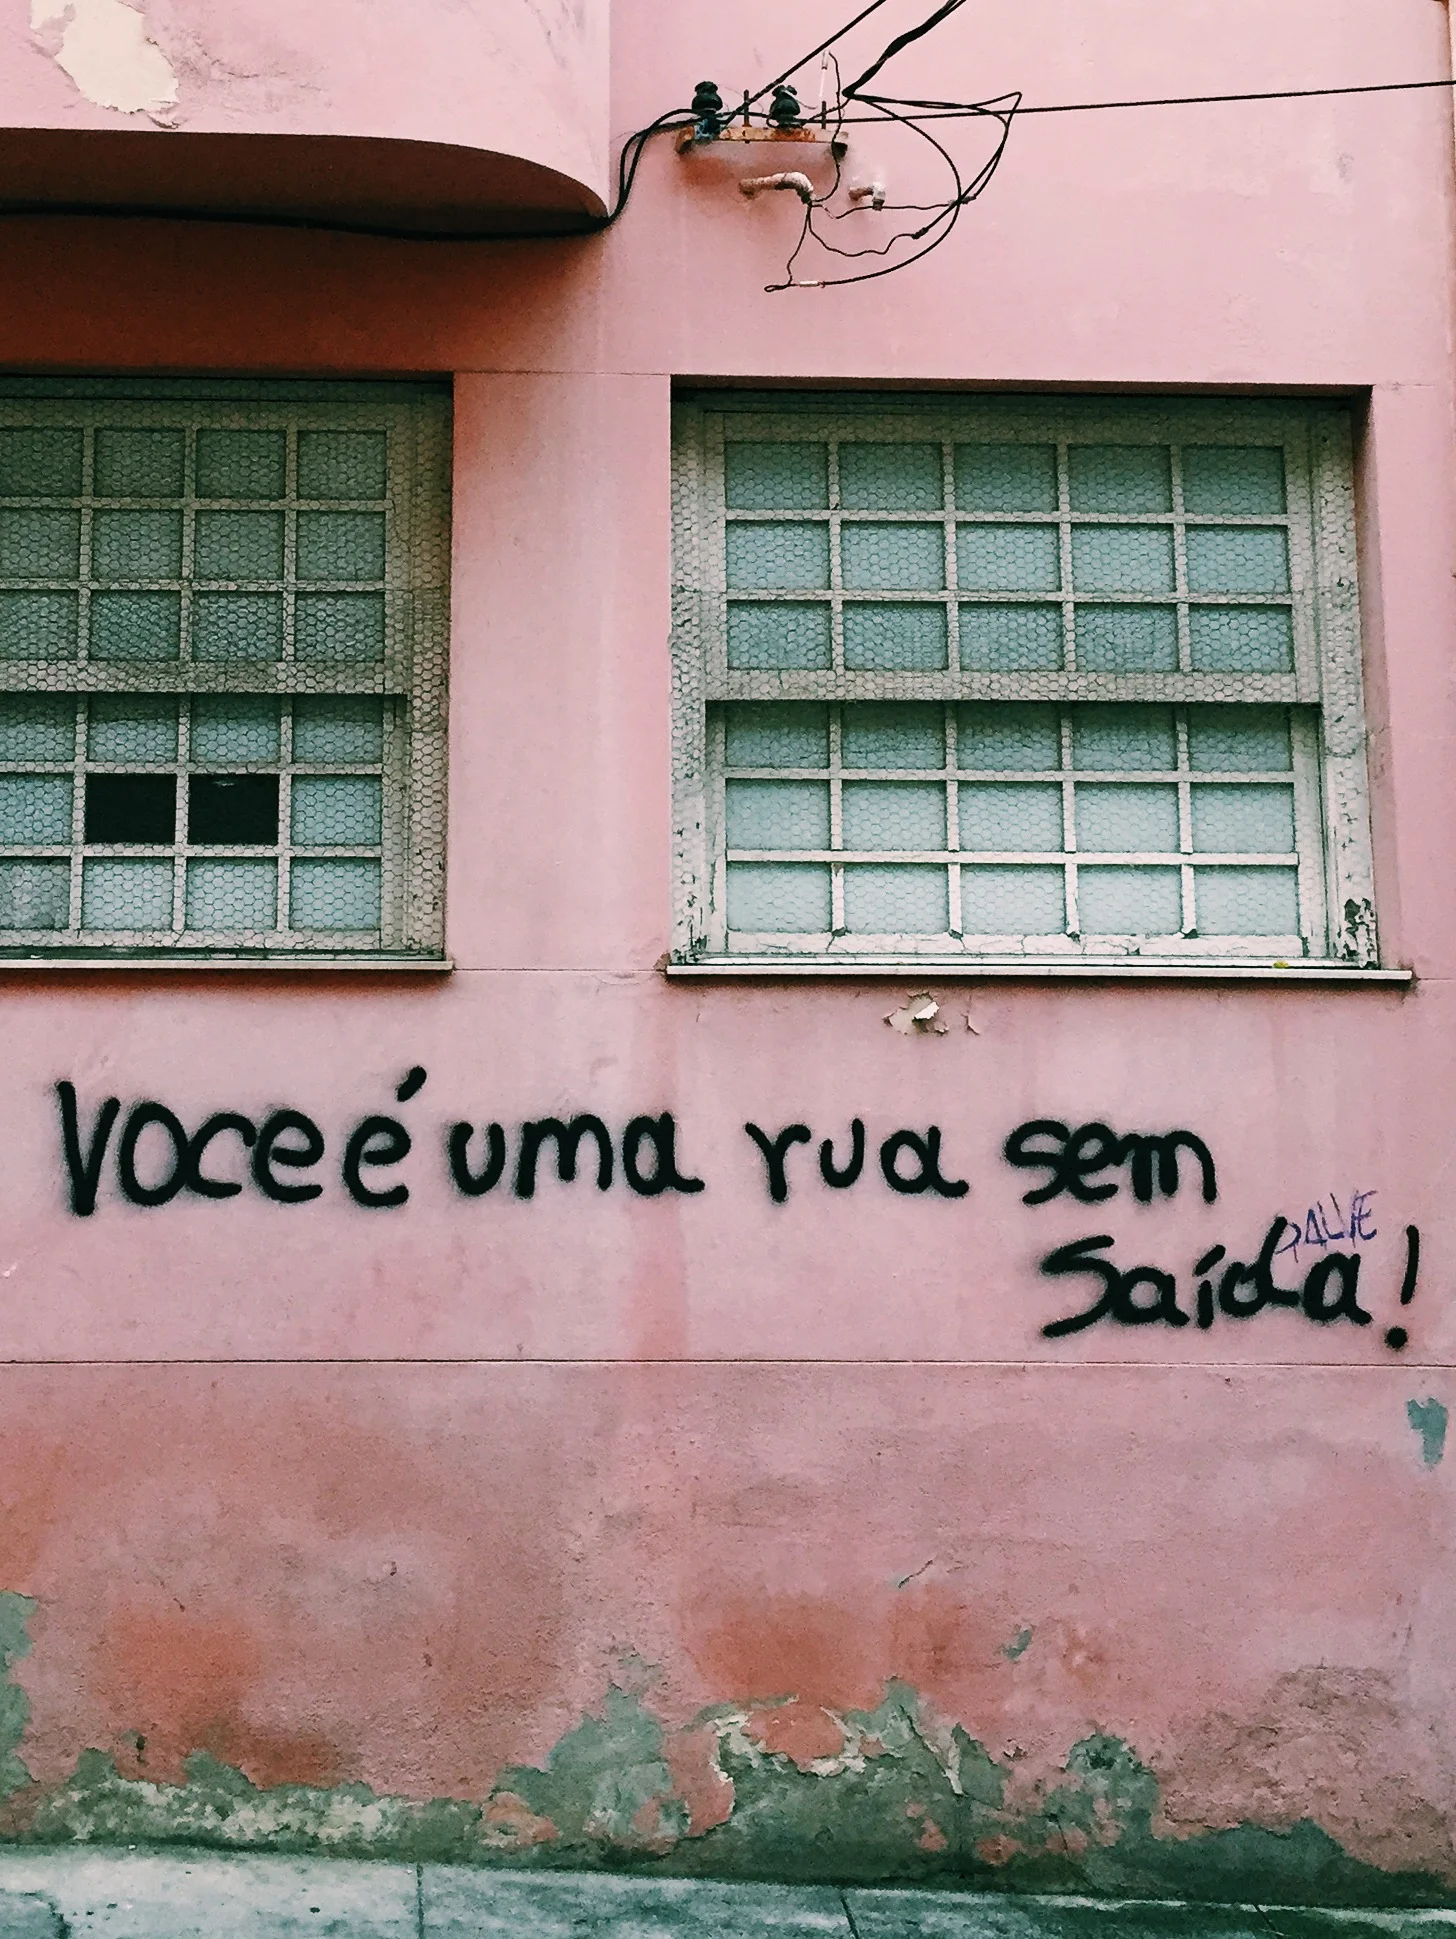 Voce é uma rua sem
Saída!